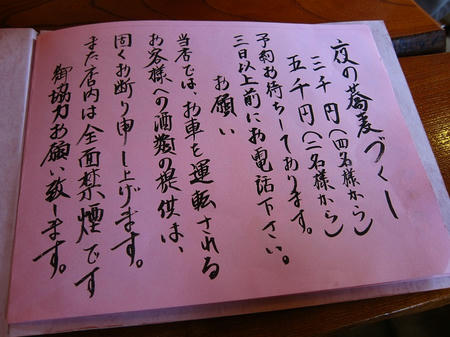 夜の蕎麦づくし
三千円(四名様から)
五千円(二名様から)
予約お待ちしてあります。
三日以上前にお電話下さい。
お願い
当店では、お車を運転される
お客様への酒類の提供は、
固くお断り申し上げます。
また店内は全面禁煙です
御協力お願い致します。